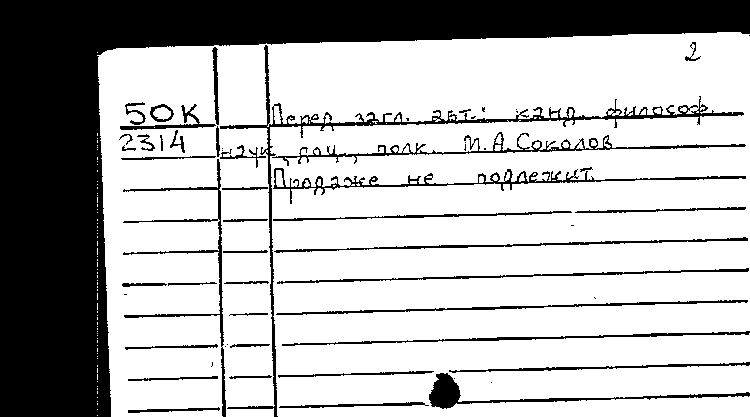 2
50К Перед загл. авт.: канд. философ.
2314 наук, доц., полк. М.А.Соколов
Продаже не подлежит.